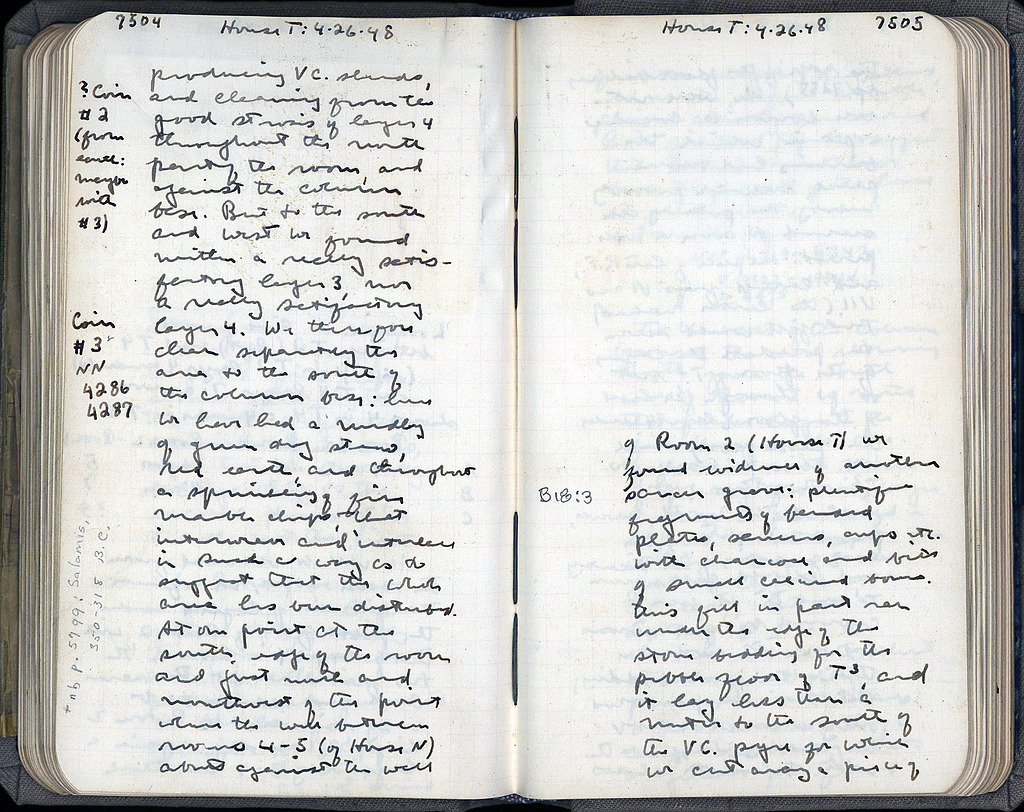 7504
House T: 4.26.48
producing V C. sherds,
and cleaning from the
good strosis of layer 4
throughout the north
part of the room, and
against the column
base. But to the south
and west we found
neither a really satis-
factory layer 3, nor
a really satisfactory
layer 4. We therefore
clear separately the
area to the south of
the column base: here
we have had a medley
of green dry stereo,
red earth and throughout
a sprinkling of fine
marble chips, that
interweaves and interlaces
in such a way as to
suggest that the whole
area has been disturbed.
At one point at the
south edge of the room
and just north and
northwest of the point
where the wall between
rooms 4-5 (of House N)
abuts against the wall
? Coin
#2
(from
south:
maybe
with
#3)
Coin
#3
NN
4286
4287
* nb p. 5799: Salamis,
350-318 B.C.
House T: 4.26.48
7505
of Room 2 (House T) we
found evidence of another
saucer grave: plentiful
fragments of burned
plates, saucers, cups etc.
with charcoal, and bits
of small calcined bone.
This fill in part ran
under the edge of the
stone bedding for the
pebble floor of T3, and
it lay less than a
meter to the south of
the V C. pyre for which
we cut away a piece of
B18:3